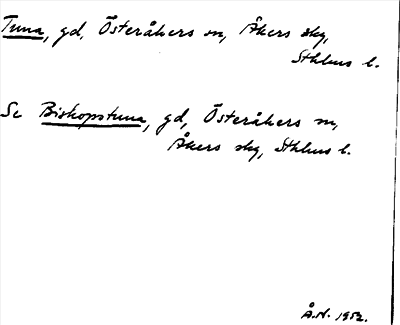 Tuna, gd, Österåkers sn, Åkers skg,
Sthlms l.
Se Biskopstuna, gd, Österåkers sn,
Åkers skg, Sthlms l.
Å.N. 1952.